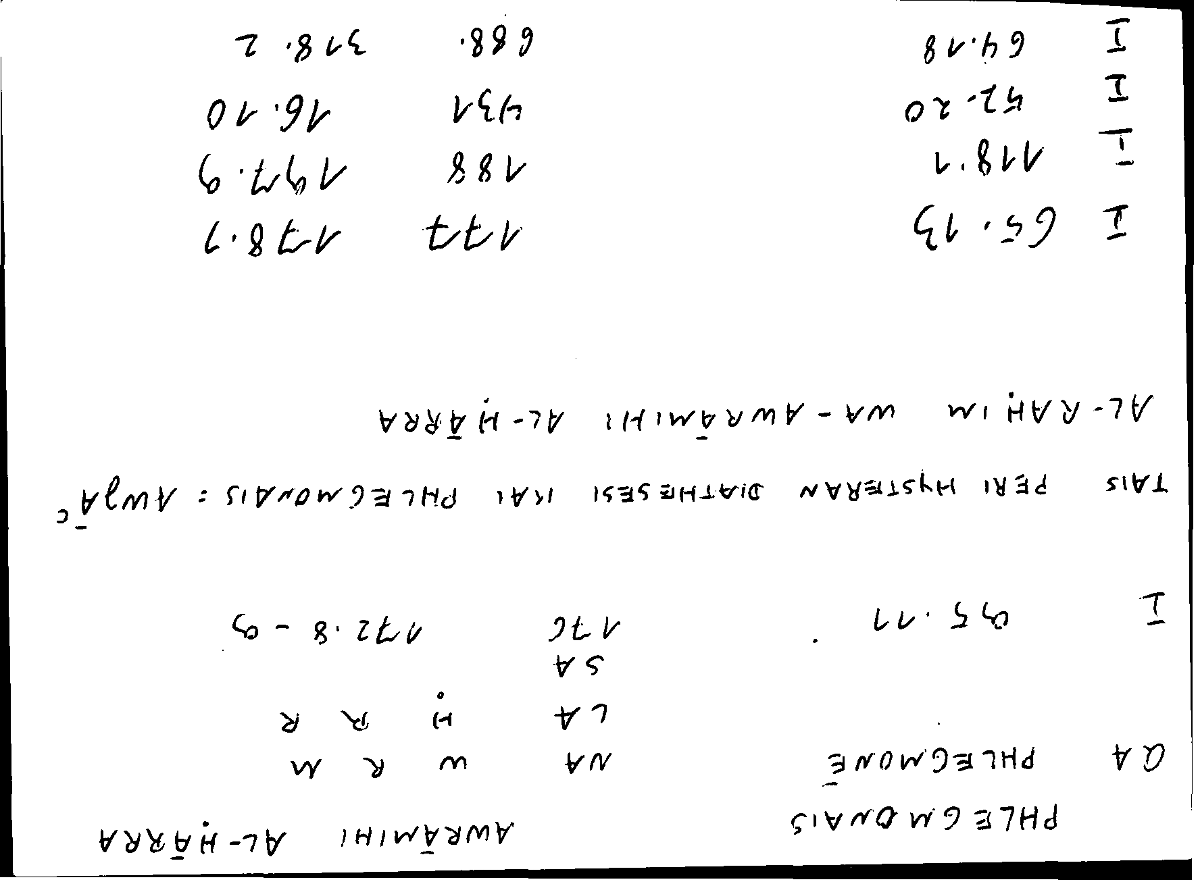 PHLEGMONAIS AWRĀMIHI AL-ḤĀRRA
QA PHLEGMONĒ NA W R M
LA Ḥ R R
SA
I 95.11 176 172.8-9
TAIS PERI HYSTERAN DIATHESESI KAI PHLEGMONAIS : AWJĀʿ
AL-RAḤIM WA-AWRĀMIHI AL-ḤĀRRA
I 65.13 177 178.1
I 118.1 188 197.9
I 52.20 431 16.10
I 64.18 688. 318.2